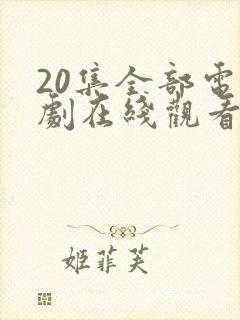 20集全部電
劇在綫觀看
姬菲芙